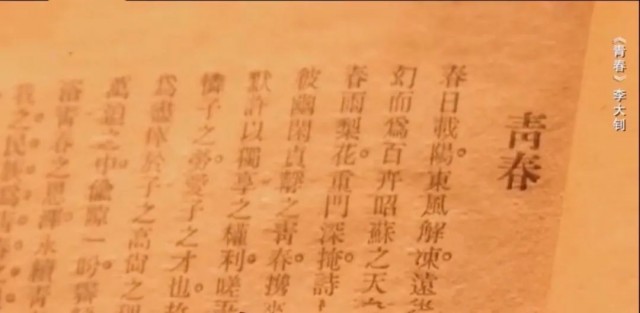 《青春》 李大钊
青春
春日載陽。東風解凍。遠
幻而爲百卉昭蘇之天
春雨。梨花重門深掩。詩
彼幽閒貞靜之青春。攜
默許以獨享之權利。嗟吾
憐子之勞。愛子之才也。故
爲盡瘁於子之高尚之理
之中儻諒一時
浴青春之恩澤。永續青
我之民族爲青春之